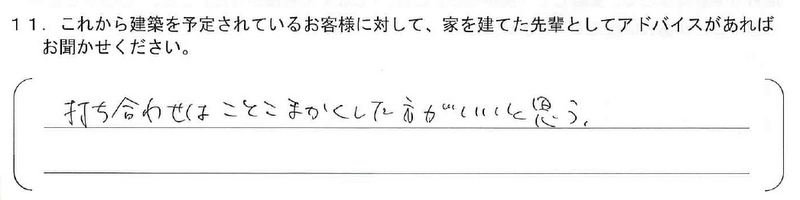 11. これから建築を予定されているお客様に対して、家を建てた先輩としてアドバイスがあれば
お聞かせください。
打ち合わせはことこまかくした方がいいと思う。